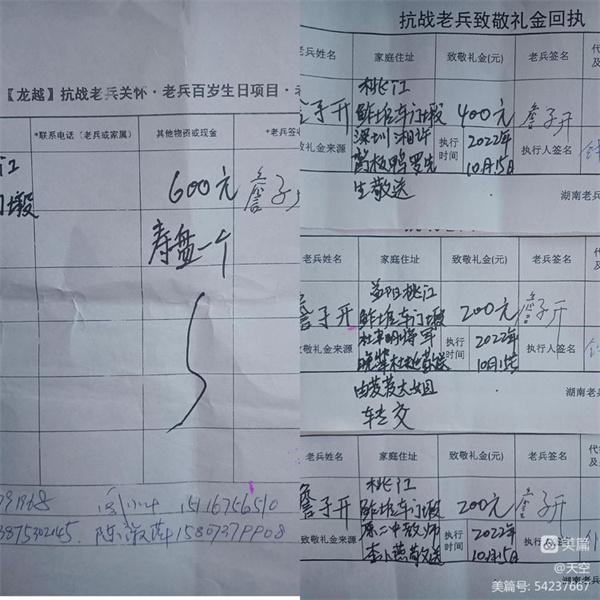 【龙越】抗战老兵关怀·老兵百岁生日项目·
*联系电话（老兵或家属） 其他物资或现金 *老兵签
江
600元 詹子
寿盘一个
15116756510
3875302145. 15807379908
抗战老兵致敬礼金回执
老兵姓名 家庭住址 致敬礼金(元) 老兵签名
詹子开 桃江 鲊埠车门塅 400元 詹子开
敬礼金来源 深圳湘许 执行时间 2022年10月15日 执行人签名
罗先
生敬送
湖南老兵
老兵姓名 家庭住址 致敬礼金(元) 老兵签名
詹子开 益阳桃江 鲊埠车门塅 200元 詹子开
致敬礼金来源 杜聿明将军 执行时间 2022年10月15日 执行人签名
由 大姐
转交
湖南老兵
老兵姓名 家庭住址 致敬礼金(元) 老兵签名
詹子开 桃江 鲊埠车门塅 200元 詹子开
敬礼金来源 原二中教师 执行时间 2022年10月15日
敬送
湖南老兵
美篇
@天空
美篇号: 54237667